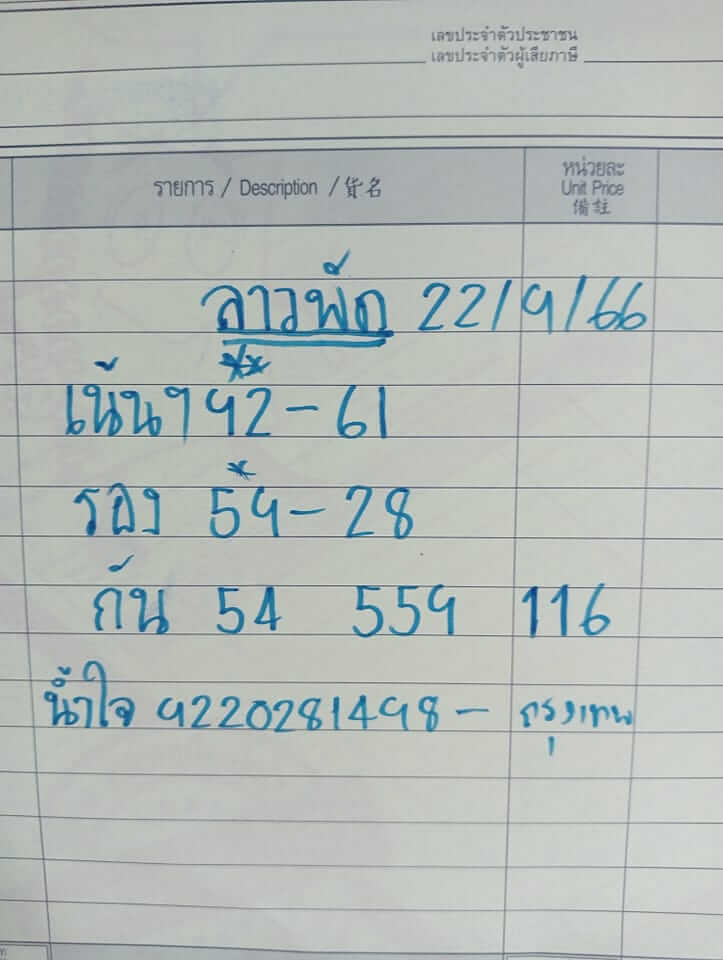 เลขประจำตัวประชาชน
เลขประจำตัวผู้เสียภาษี
รายการ / Description / 貨名
หน่วยละ
Unit Price
備註
ลาวพัฒ 22/9/66
เน้นๆ 92-61
รอง 59-28
กัน 54 559 116
น้ำใจ 9220281498 - กรุงเทพ